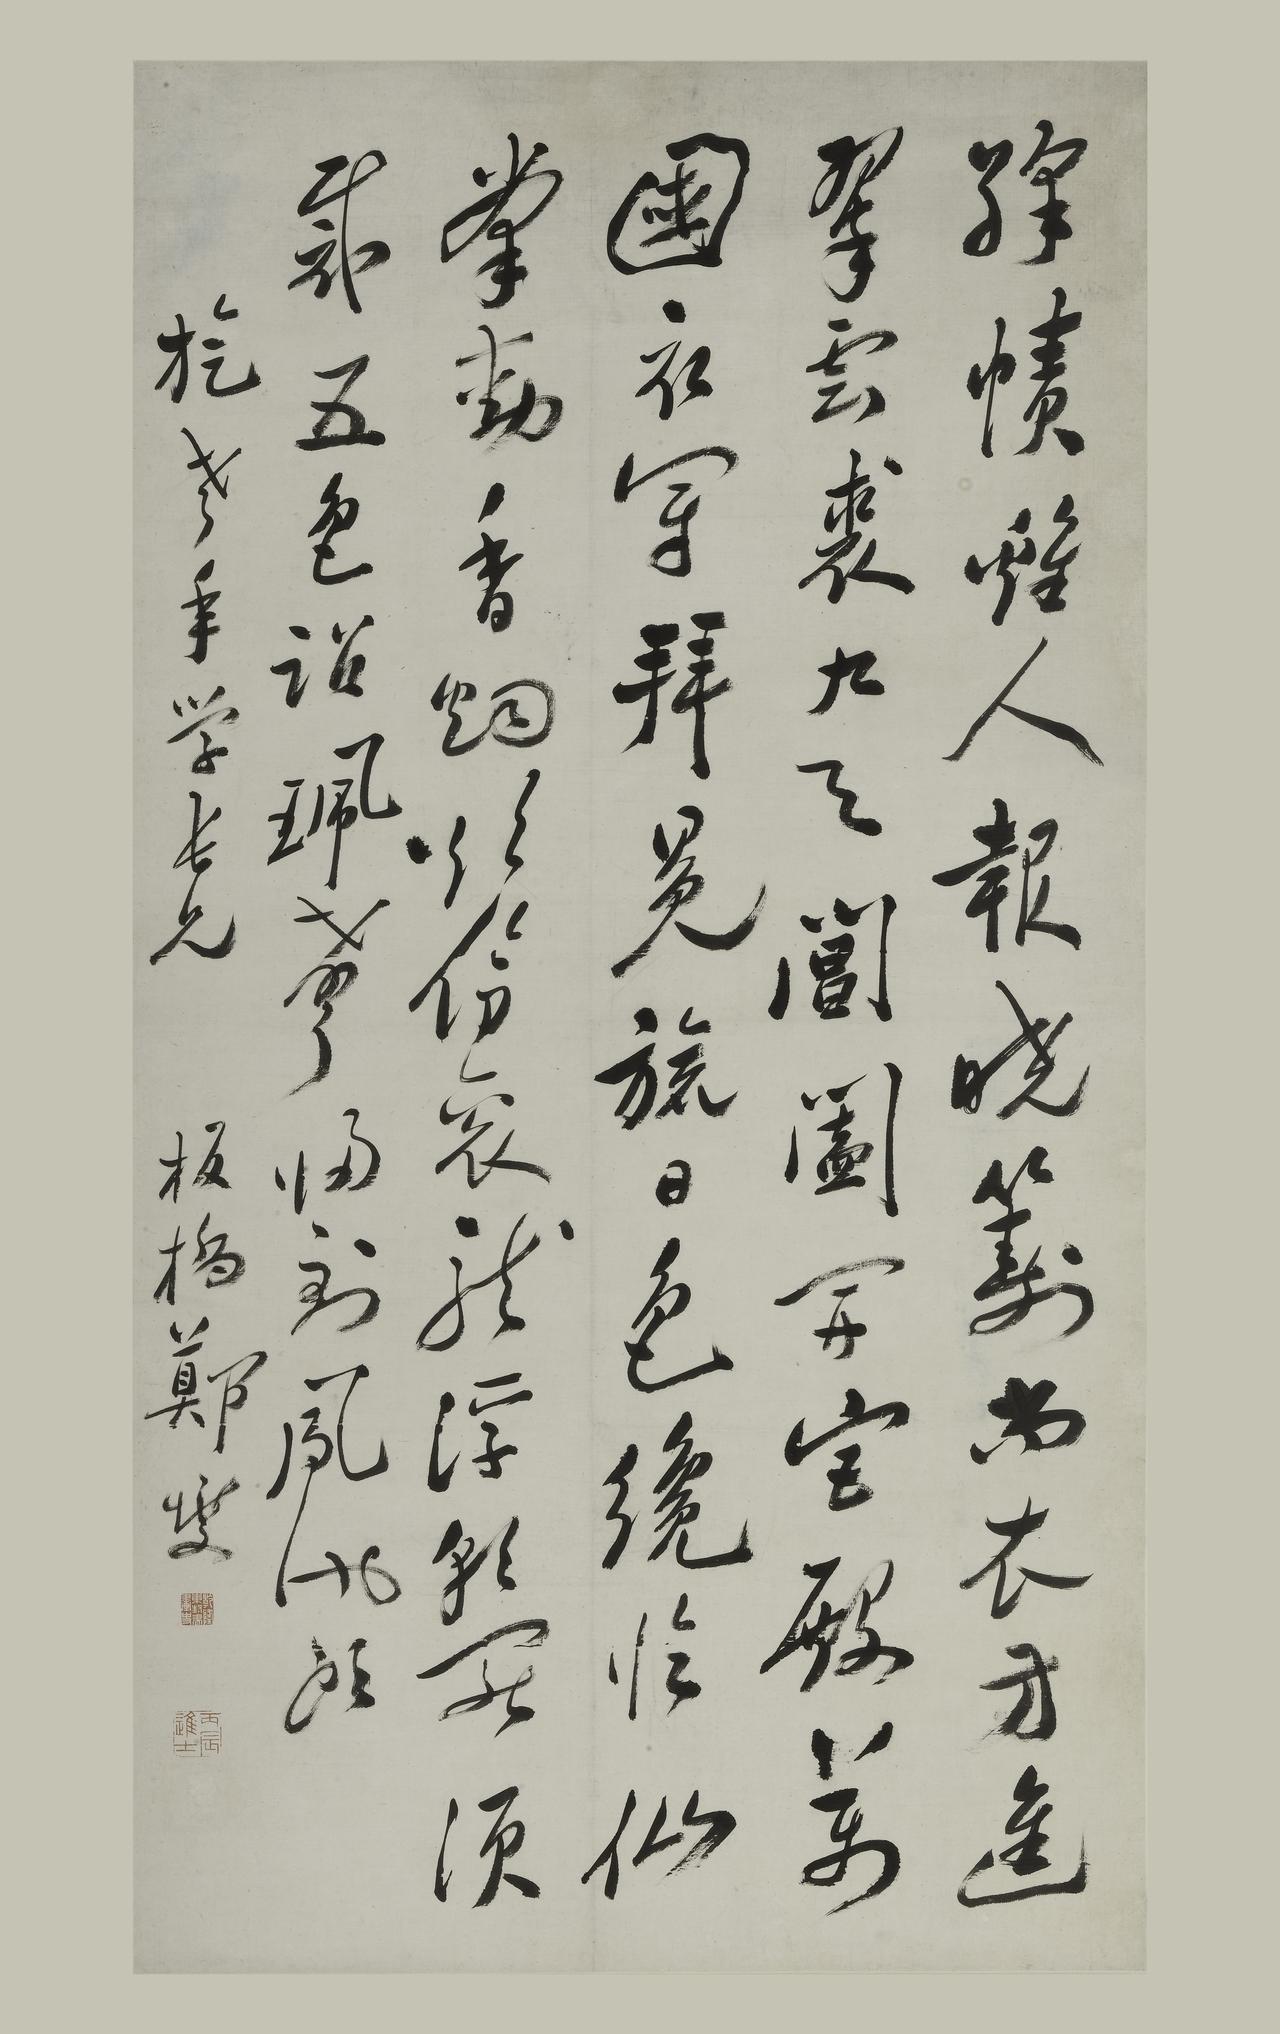 絳幘雞人報曉籌尚衣方進
翠雲裘九天閶闔開宮殿萬
國衣冠拜冕旒日色纔臨仙
掌動香煙欲傍袞龍浮朝罷須
裁五色詔珮聲歸到鳳池頭
老年学長兄 板橋鄭燮
丙辰進士